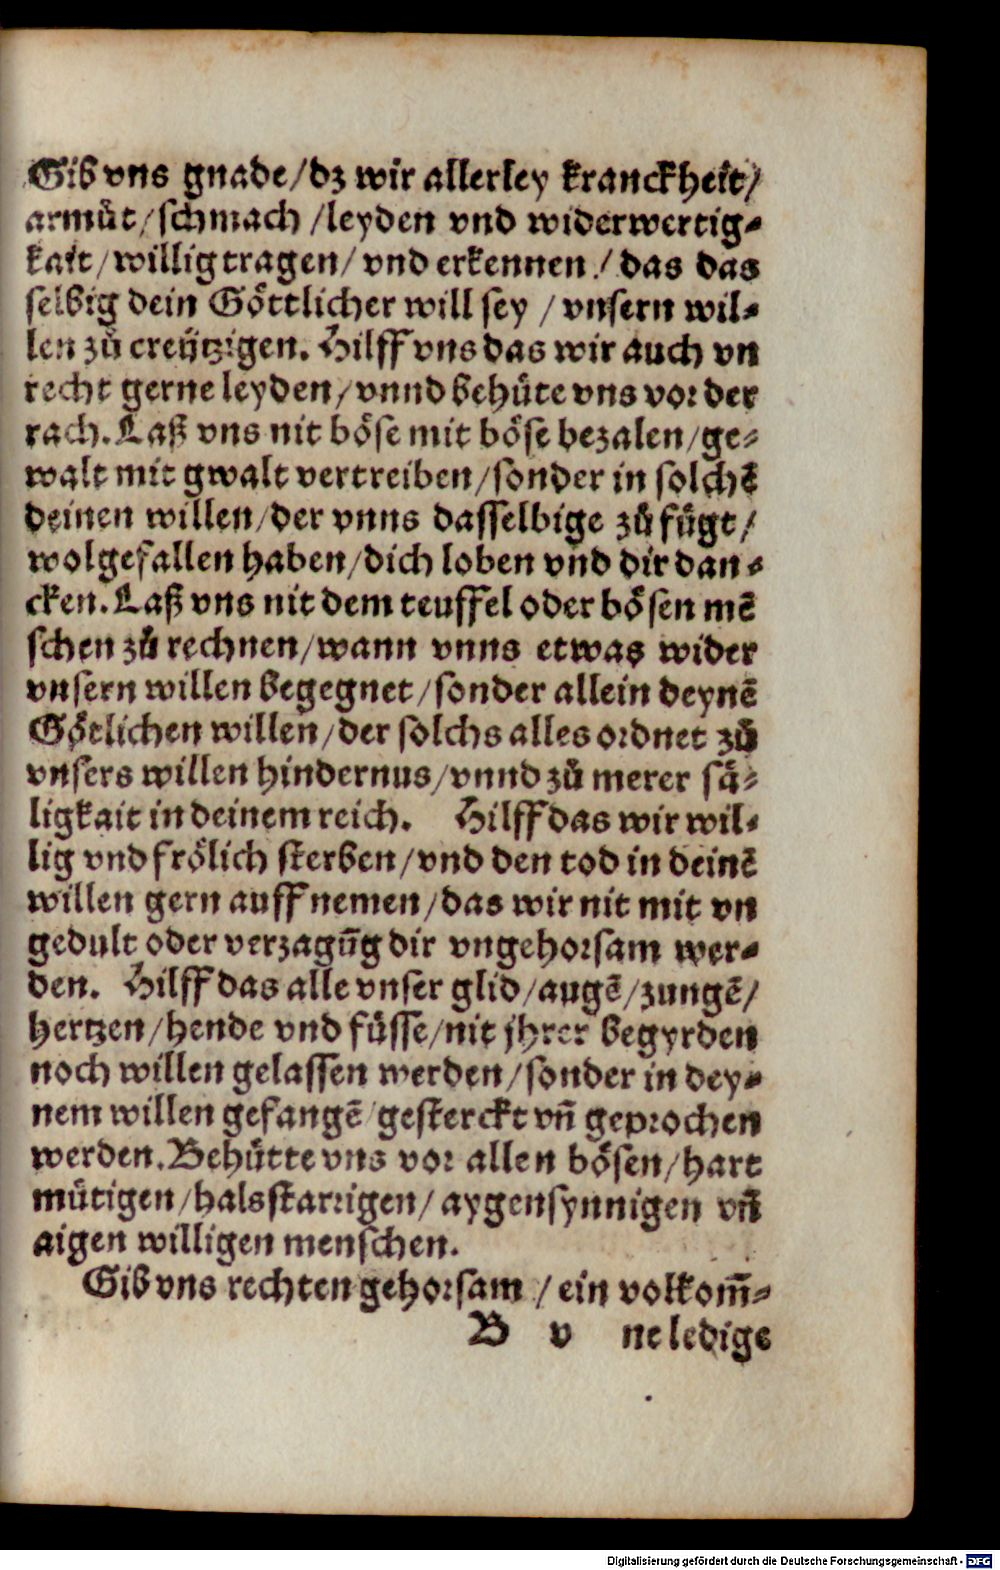 Gib vns gnade/dz wir allerley kranckheit/
armůt/schmach/leyden vnd widerwertig-
kait/willig tragen/vnd erkennen/das das
selbig dein Göttlicher will sey/vnsern wil-
len zů creützigen. Hilff vns das wir auch vn
recht gerne leyden/vnnd behüte vns vor der
rach. Laß vns nit böse mit böse bezalen/ge-
walt mit gwalt vertreiben/sonder in solchē
deinen willen/der vnns dasselbige zů fügt/
wolgefallen haben/dich loben vnd dir dan-
cken. Laß vns nit dem teuffel oder bösen mē
schen zů rechnen/wann vnns etwas wider
vnsern willen begegnet/sonder allein deynē
Götlichen willen/der solchs alles ordnet zů
vnsers willen hindernus/vnnd zů merer sä-
ligkait in deinem reich. Hilff das wir wil-
lig vnd frölich sterben/vnd den tod in deinē
willen gern auff nemen/das wir nit mit vn
gedult oder verzagūg dir vngehorsam wer-
den. Hilff das alle vnser glid/augē/zungē/
hertzen/hende vnd füsse/nit jhrer begyrden
noch willen gelassen werden/sonder in dey-
nem willen gefangē/gesterckt vñ geprochen
werden. Behütte vns vor allen bösen/hart
mütigen/halsstarrigen/aygensynnigen vñ
aigen willigen menschen.
Gib vns rechten gehorsam/ein volkom̄-
B v ne ledige
Digitalisierung gefördert durch die Deutsche Forschungsgemeinschaft - DFG